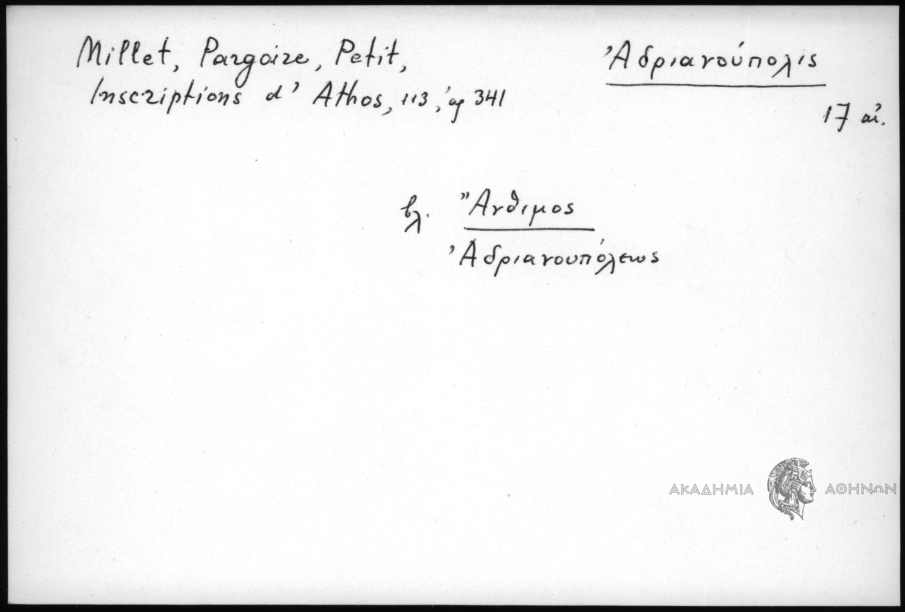 Millet, Pargoire, Petit,
Inscriptions d' Athos, 113, ἀρ 341
Ἀδριανούπολις
17 αἰ.
βλ. Ἄνθιμος
Ἀδριανουπόλεως
ΑΚΑΔΗΜΙΑ ΑΘΗΝΩΝ